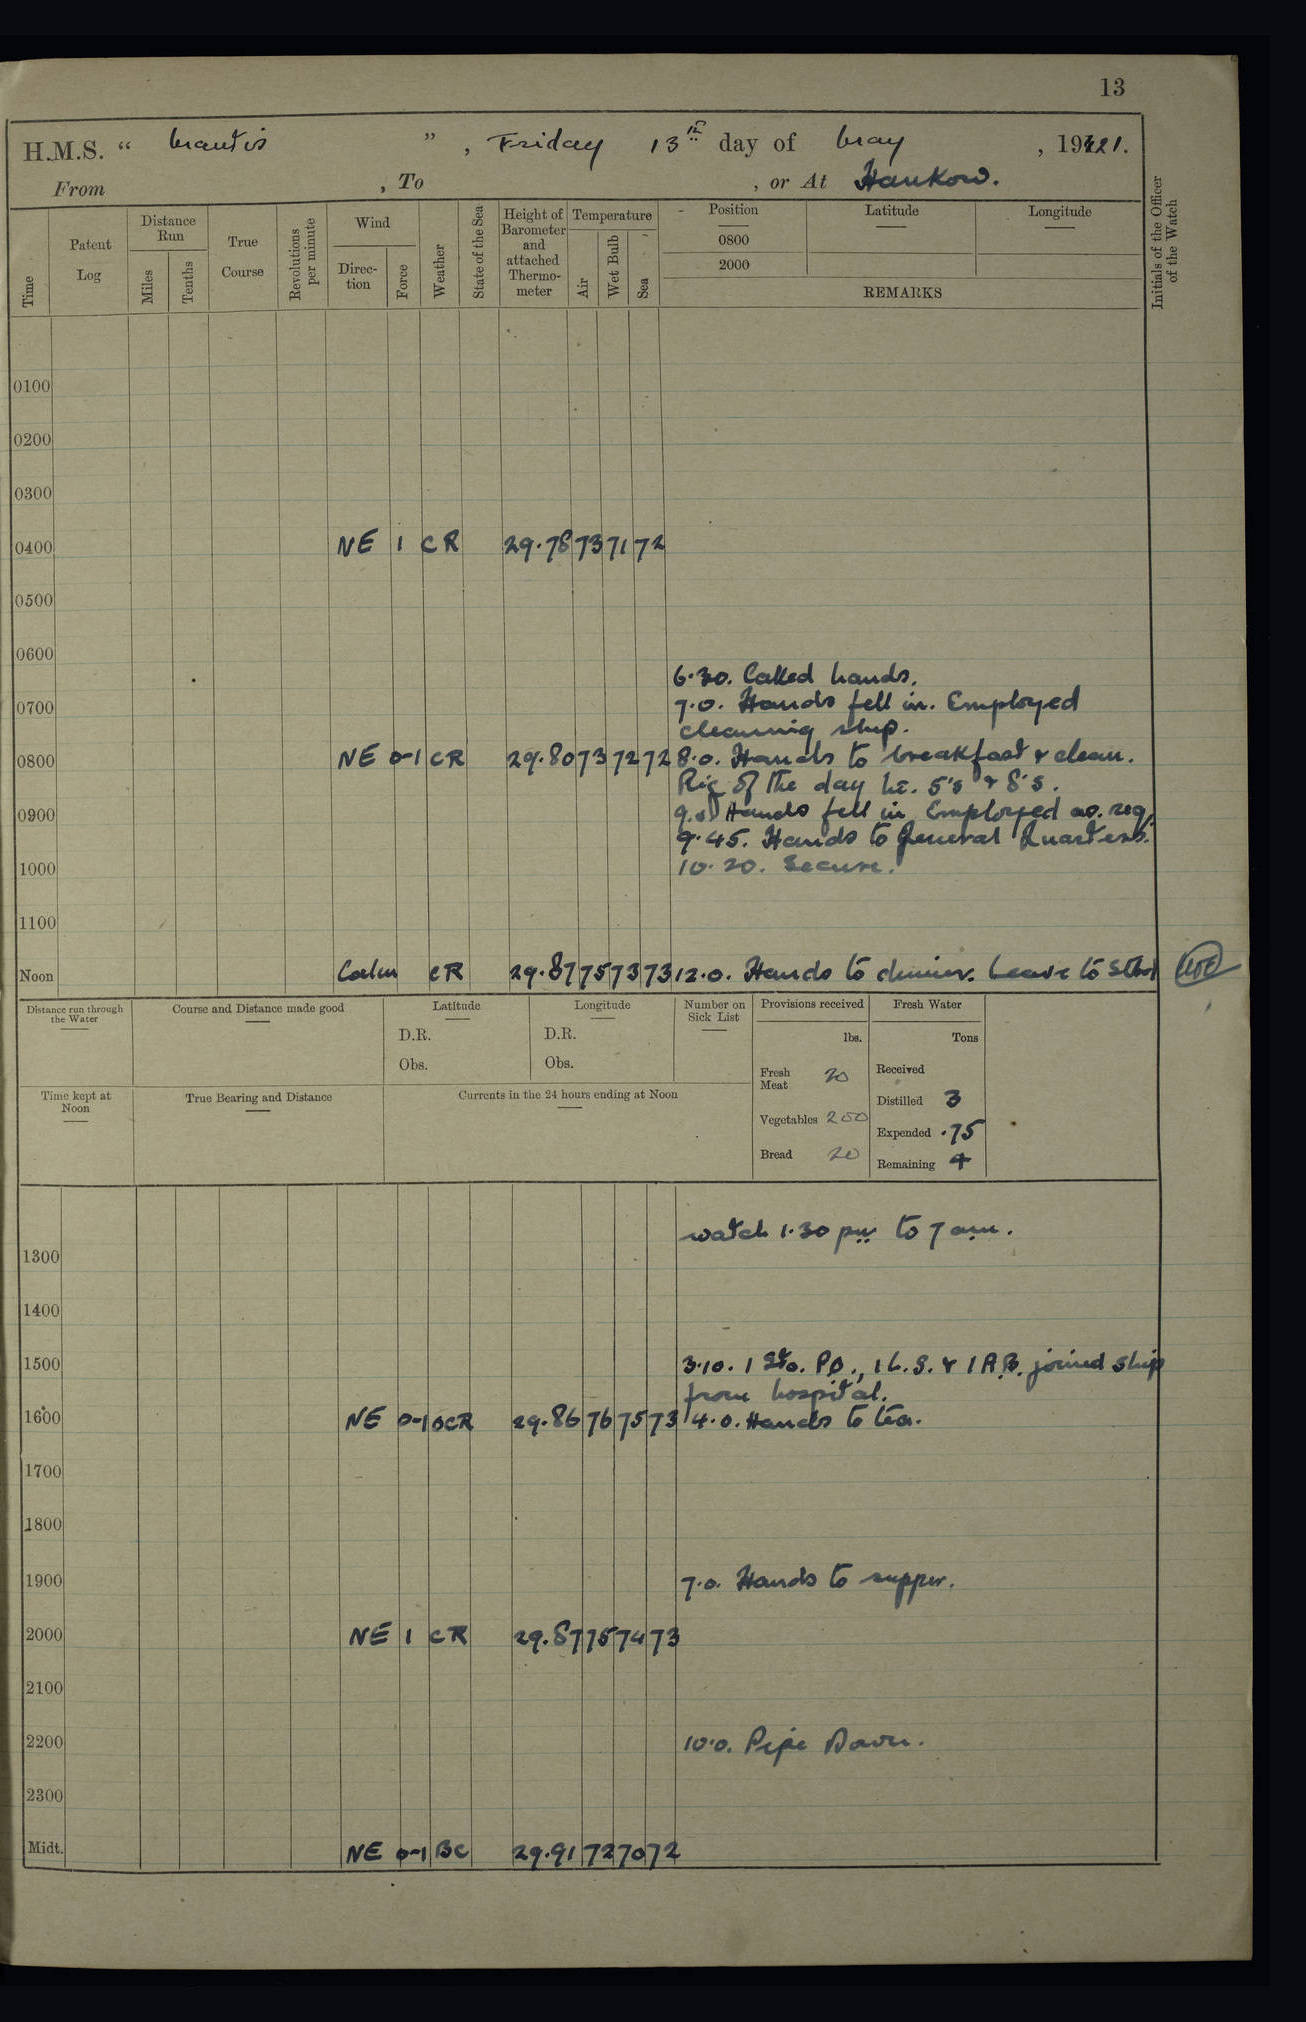 13
H.M.S. “ Mantis ” , Friday 13th day of May , 1921.
From , To , or At Hankow.
Time
Patent Log
Distance Run
Miles
Tenths
True Course
Revolutions per minute
Wind
Direc-tion
Force
Weather
State of the Sea
Height of Barometer and attached Thermo-meter
Temperature
Air
Wet Bulb
Sea
Position
0800
2000
Latitude
Longitude
REMARKS
Initials of the Officer of the Watch
0100
0200
0300
0400 NE 1 CR 29.78 73 71 72
0500
0600
6.30. Called hands.
0700 7.0. Hands fell in. Employed
cleaning ship.
0800 NE 0-1 CR 29.80 73 72 72 8.0. Hands to breakfast & clean.
Rig of the day 5's & 8's.
0900 9.0 Hands fell in Employed as. req.
9.45. Hands to General Quarters.
1000 10.20. Secure.
1100
Noon Calm CR 29.87 75 73 73 12.0. Hands to dinner. Leave to Stbd
Distance run through the Water
Course and Distance made good
Latitude
D.R.
Obs.
Longitude
D.R.
Obs.
Number on Sick List
Provisions received
lbs.
Fresh Meat 20
Vegetables 200
Bread 20
Fresh Water
Tons
Received
Distilled 3
Expended .75
Remaining 4
Time kept at Noon
True Bearing and Distance
Currents in the 24 hours ending at Noon
watch 1.30 pm to 7 am.
1300
1400
1500 3.10. 1 Sto. P.O., 1 L.S. & 1 A.B. joined ship
from hospital.
1600 NE 0-1 OCR 29.86 76 75 73 4.0. Hands to tea.
1700
1800
1900 7.0. Hands to supper.
2000 NE 1 CR 29.87 75 74 73
2100
2200 10.0. Pipe Down.
2300
Midt. NE 0-1 BC 29.91 72 70 72